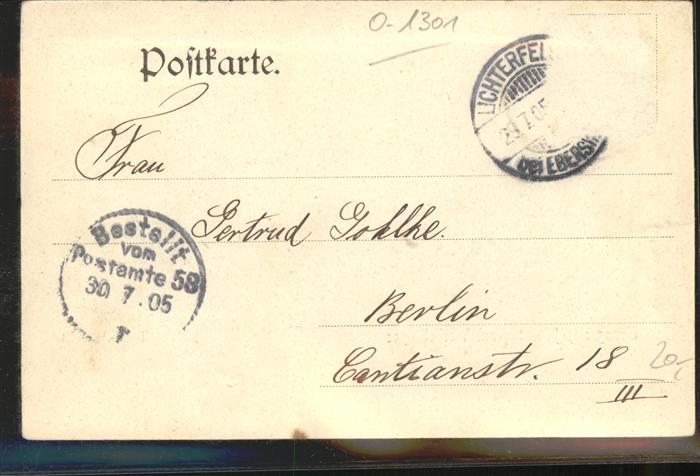 O-1301
Poſtkarte.
LICHTERFEL
29.7.05
bei EBERSW
Frau
Gertrud Gohlke.
Bestellt
vom
Postamte 58
30.7.05
Berlin
Cantianstr. 18
III
20,-